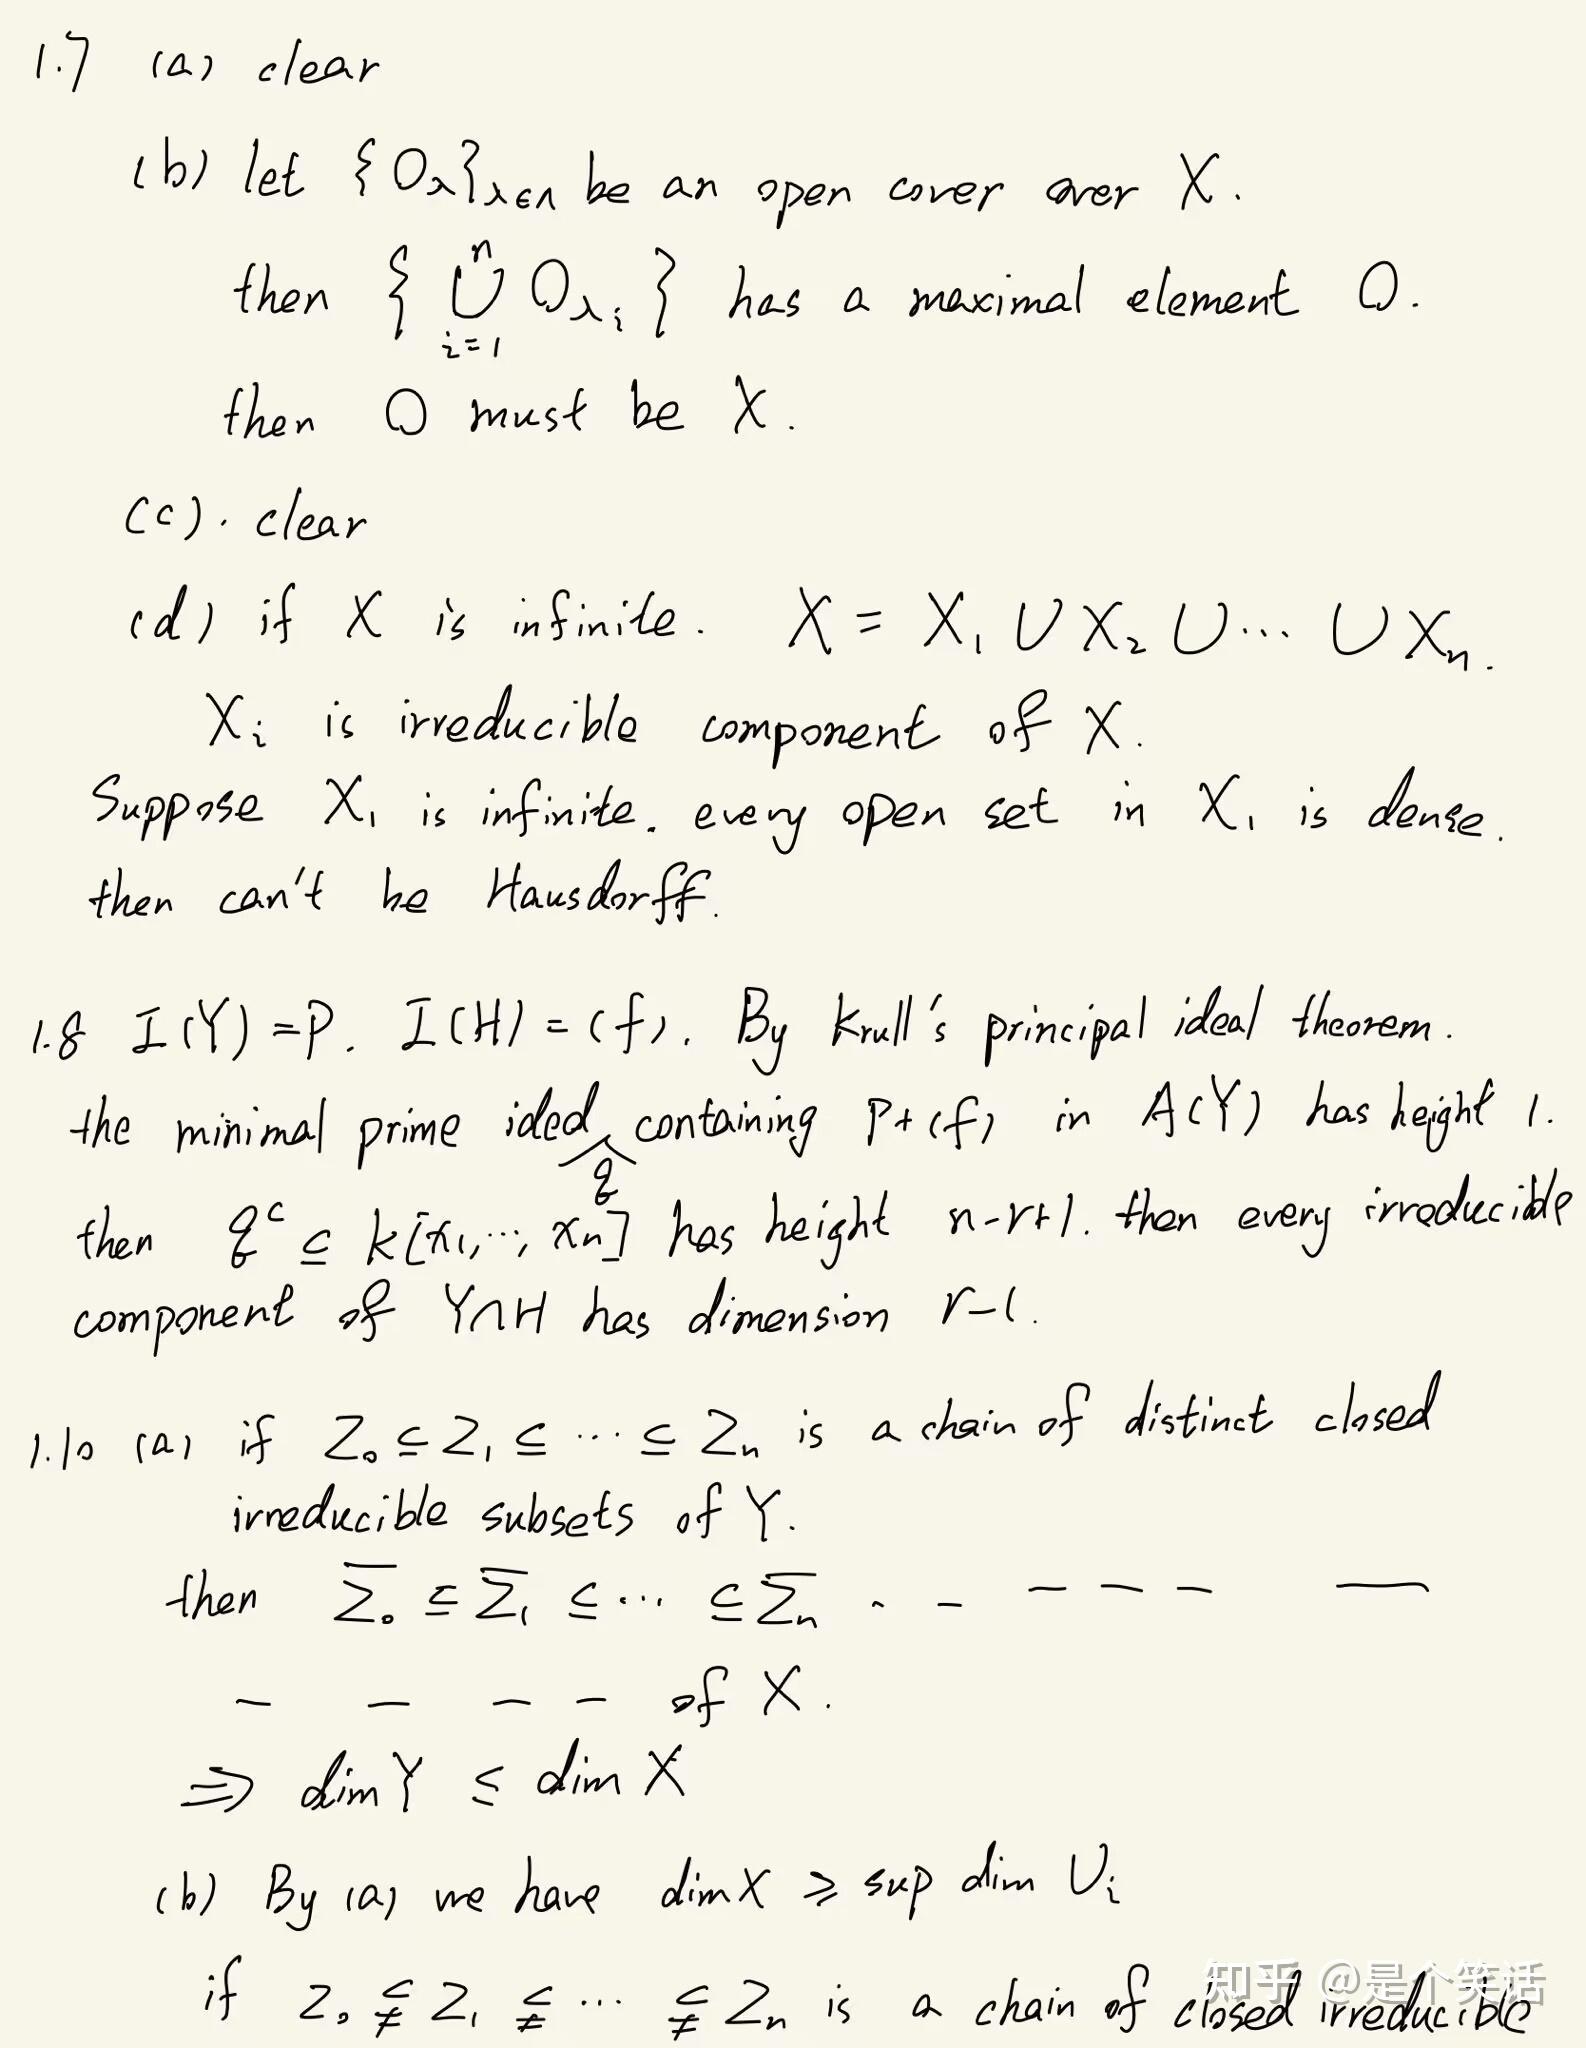 1.7 (a) clear
(b) let {O_λ}_{λ∈Λ} be an open cover over X.
then { ⋃_{i=1}^{n} O_{λ_i} } has a maximal element O.
then O must be X.
(c). clear
(d) if X is infinite. X = X₁ ∪ X₂ ∪ ⋯ ∪ Xₙ.
X_i is irreducible component of X.
Suppose X₁ is infinite. every open set in X₁ is dense.
then can't be Hausdorff.
1.8 I(Y) = P. I(H) = (f). By Krull's principal ideal theorem.
the minimal prime ided q containing P+(f) in A(Y) has height 1.
then q^c ⊆ k[x₁,⋯, xₙ] has height n-r+1. then every irreducible
component of Y∩H has dimension r-1.
1.10 (a) if Z₀ ⊆ Z₁ ⊆ ⋯ ⊆ Zₙ is a chain of distinct closed
irreducible subsets of Y.
then Z̅₀ ⊆ Z̅₁ ⊆ ⋯ ⊆ Z̅ₙ - - - - - —
- - - - of X.
⇒ dim Y ≤ dim X
(b) By (a) we have dim X ≥ sup dim U_i
if Z₀ ⊊ Z₁ ⊊ ⋯ ⊊ Zₙ is a chain of closed irreducible
知乎 @是个笑话